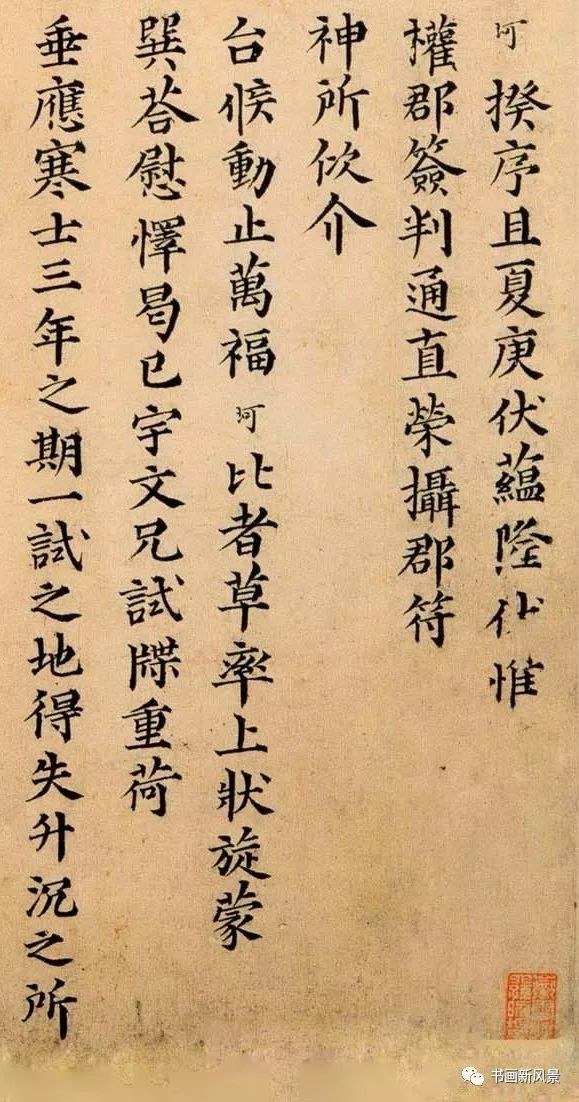 珂揆序且夏庚伏蘊隆伏惟
權郡簽判通直榮攝郡符
神所佽介
台候動止萬福珂比者草率上狀旋蒙
巽荅慰懌曷已宇文兄試牒重荷
垂應寒士三年之期一試之地得失升沉之所
书画新风景